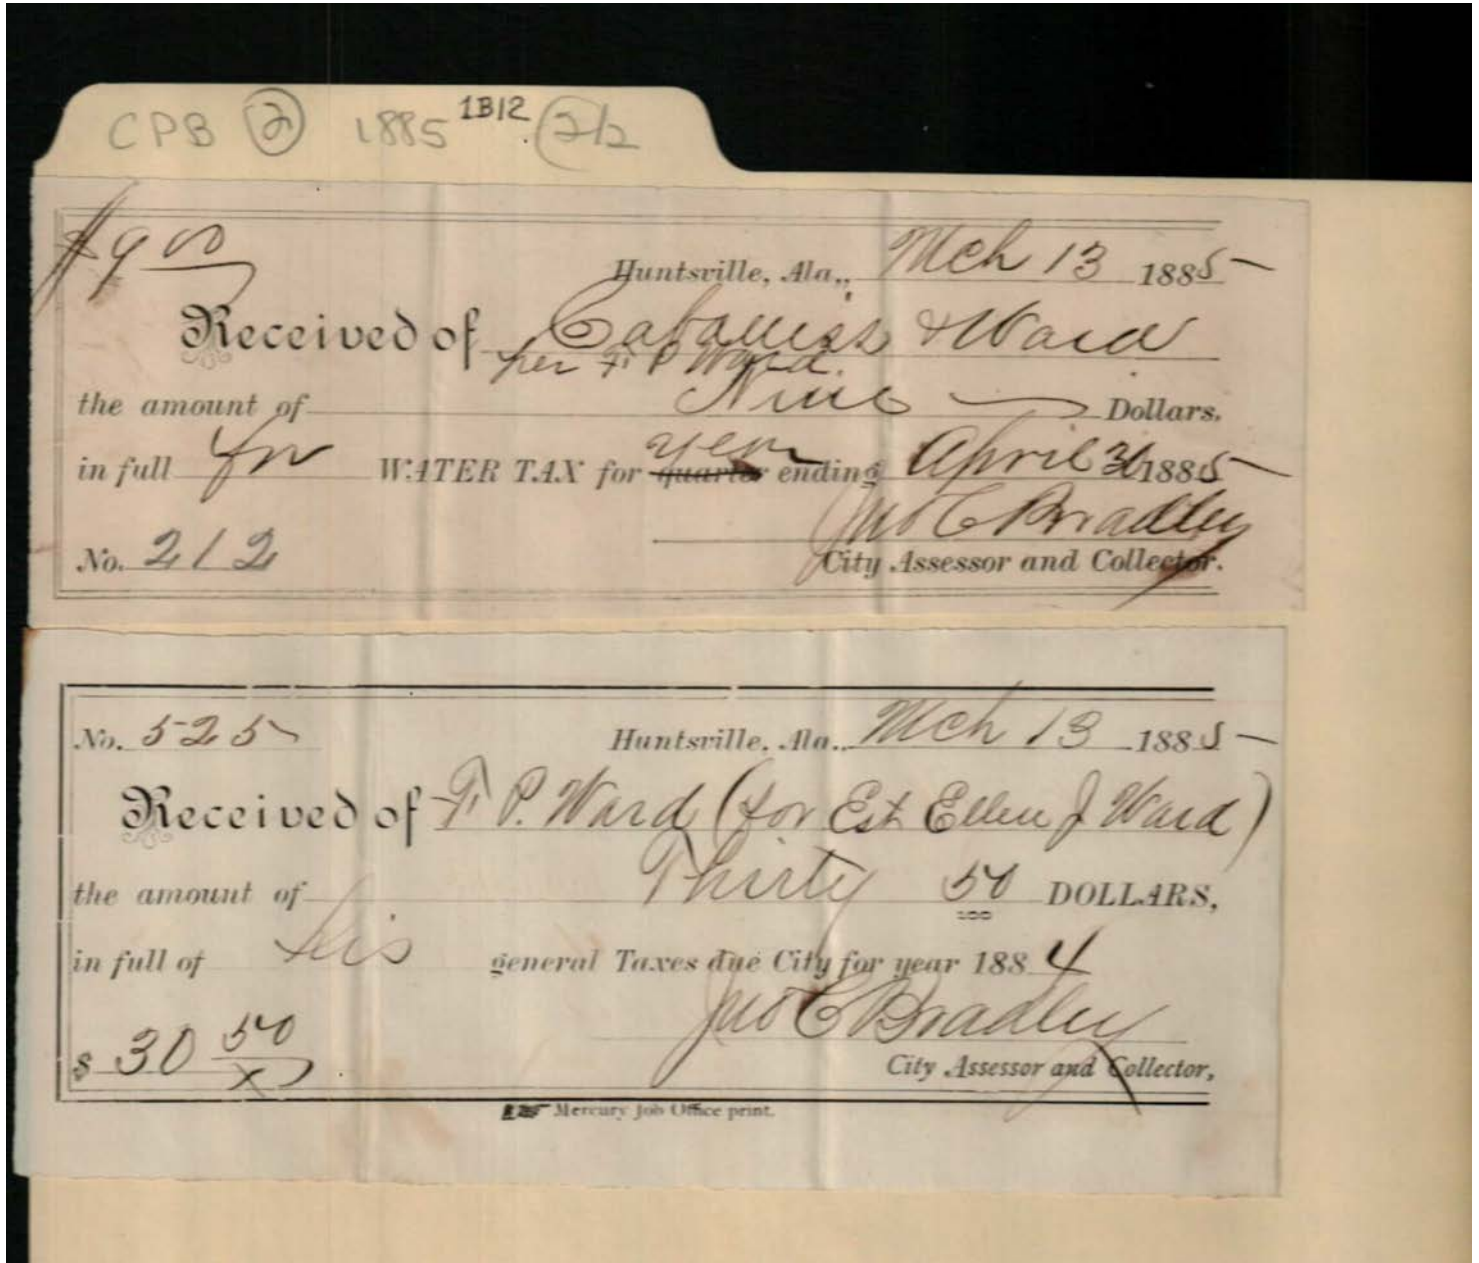 CPB (2) 1885 1B12 (2/2
$9 00
Huntsville, Ala., Mch 13 1885
Received of Cabaniss & Ward
per F. P. Ward.
the amount of Nine Dollars.
in full for WATER TAX for quarter year ending April 1885
Jno C Bradley
No. 212
City Assessor and Collector.
No. 525
Huntsville, Ala., Mch 13 1885
Received of F. P. Ward (for Est Ellen J Ward)
the amount of Thirty 50/100 DOLLARS,
in full of his general Taxes due City for year 1884
Jno C Bradley
$ 30 50
City Assessor and Collector,
Mercury Job Office print.